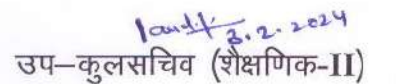 3.2.2024
उप–कुलसचिव (शैक्षणिक-II)